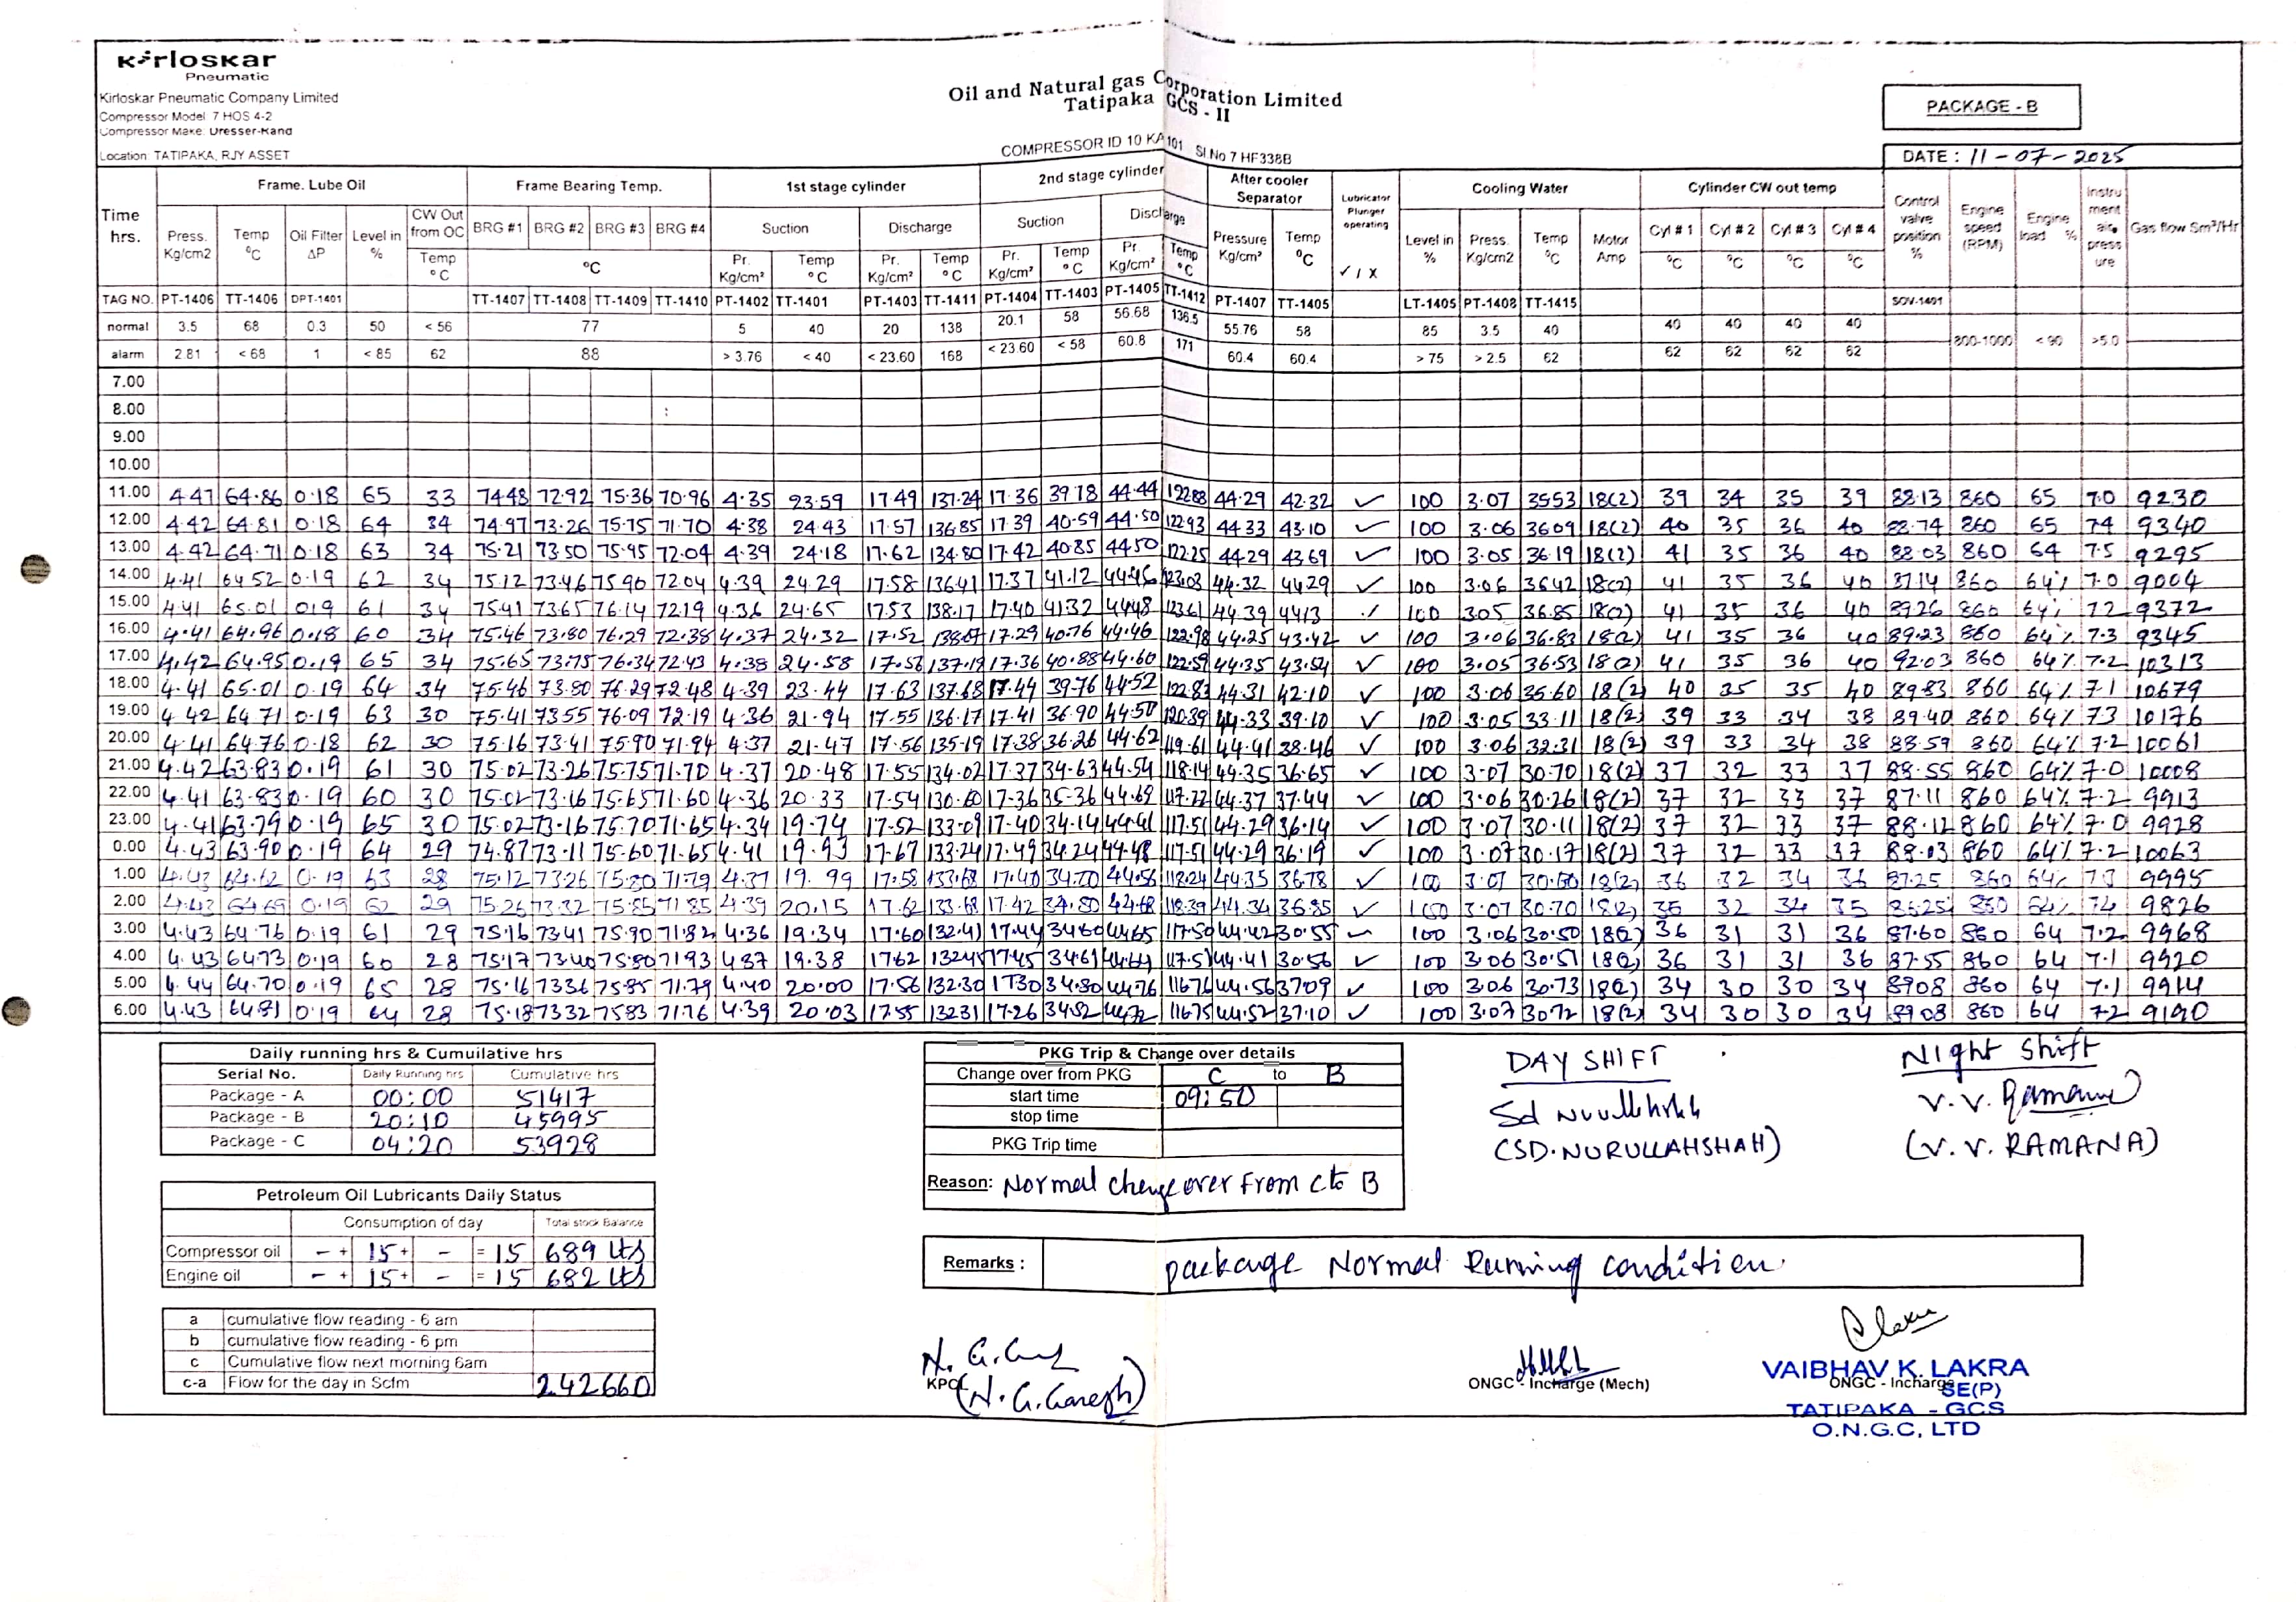 Kirloskar
Pneumatic
Kirloskar Pneumatic Company Limited
Compressor Model 7 HOS 4-2
Compressor Make: Dresser-Rand
Location: TATIPAKA, RJY ASSET
Oil and Natural gas Corporation Limited
Tatipaka GCS - II
COMPRESSOR ID 10 KA 101 Sl No 7 HF338B
PACKAGE - B
DATE : 11-07-2025
Time hrs. Frame. Lube Oil Frame Bearing Temp. 1st stage cylinder 2nd stage cylinder After cooler Separator Lubricator Plunger operating ✓ / X Cooling Water Cylinder CW out temp Control valve position % Engine speed (RPM) Engine load % Instru ment air press ure Gas flow Sm³/Hr
Press. Kg/cm2 Temp °C Oil Filter ΔP Level in % CW Out from OC Temp °C BRG #1 BRG #2 BRG #3 BRG #4 °C Suction Discharge Suction Discharge Pressure Kg/cm² Temp °C Level in % Press. Kg/cm2 Temp °C Motor Amp Cyl # 1 Cyl # 2 Cyl # 3 Cyl # 4
Pr. Kg/cm² Temp °C Pr. Kg/cm² Temp °C Pr. Kg/cm² Temp °C Pr. Kg/cm² Temp °C °C °C °C °C
TAG NO. PT-1406 TT-1406 DPT-1401 TT-1407 TT-1408 TT-1409 TT-1410 PT-1402 TT-1401 PT-1403 TT-1411 PT-1404 TT-1403 PT-1405 TT-1412 PT-1407 TT-1405 LT-1405 PT-1408 TT-1415 SOV-1401
normal 3.5 68 0.3 50 < 56 77 5 40 20 138 20.1 58 56.68 136.5 55.76 58 85 3.5 40 40 40 40 40 800-1000 < 90 >5.0
alarm 2.81 < 68 1 < 85 62 88 > 3.76 < 40 < 23.60 168 < 23.60 < 58 60.8 171 60.4 60.4 > 75 > 2.5 62 62 62 62 62
7.00
8.00
9.00
10.00
11.00 4.47 64.86 0.18 65 33 74.48 72.92 75.36 70.96 4.35 23.59 17.49 137.24 17.36 39.78 44.44 122.88 44.29 42.32 ✓ 100 3.07 35.53 18(2) 39 34 35 39 88.13 860 65 7.0 9230
12.00 4.42 64.81 0.18 64 34 74.97 73.26 75.75 71.70 4.38 24.43 17.57 136.85 17.39 40.59 44.50 122.93 44.33 43.10 ✓ 100 3.06 36.09 18(2) 40 35 36 40 88.74 860 65 7.4 9340
13.00 4.42 64.71 0.18 63 34 75.21 73.50 75.95 72.04 4.39 24.18 17.62 134.80 17.42 40.85 44.50 122.25 44.29 43.69 ✓ 100 3.05 36.19 18(2) 41 35 36 40 88.03 860 64 7.5 9295
14.00 4.41 64.52 0.19 62 34 75.12 73.46 75.90 72.04 4.39 24.29 17.58 136.41 17.37 41.12 44.46 123.03 44.32 44.29 ✓ 100 3.06 36.42 18(2) 41 35 36 40 87.14 860 64% 7.0 9004
15.00 4.41 65.01 0.19 61 34 75.41 73.65 76.14 72.19 4.36 24.65 17.53 138.17 17.40 41.32 44.48 123.61 44.39 44.13 ✓ 100 3.05 36.85 18(2) 41 35 36 40 89.26 860 64% 7.2 9372
16.00 4.41 64.96 0.18 60 34 75.46 73.80 76.29 72.38 4.37 24.32 17.52 138.07 17.29 40.76 44.46 122.98 44.25 43.42 ✓ 100 3.06 36.83 18(2) 41 35 36 40 89.23 860 64% 7.3 9345
17.00 4.42 64.95 0.19 65 34 75.65 73.75 76.34 72.43 4.38 24.58 17.56 137.19 17.36 40.88 44.60 122.59 44.35 43.54 ✓ 100 3.05 36.53 18(2) 41 35 36 40 92.03 860 64% 7.2 10313
18.00 4.41 65.01 0.19 64 34 75.46 73.80 76.29 72.48 4.39 23.44 17.63 137.68 17.44 39.76 44.52 122.83 44.31 42.10 ✓ 100 3.06 35.60 18(2) 40 35 35 40 89.83 860 64% 7.1 10679
19.00 4.42 64.71 0.19 63 30 75.41 73.55 76.09 72.19 4.36 21.94 17.55 136.17 17.41 36.90 44.50 120.39 44.33 39.10 ✓ 100 3.05 33.11 18(2) 39 33 34 38 89.40 860 64% 7.3 10176
20.00 4.41 64.76 0.18 62 30 75.16 73.41 75.90 71.94 4.37 21.47 17.56 135.19 17.38 36.26 44.62 119.61 44.41 38.46 ✓ 100 3.06 32.31 18(2) 39 33 34 38 88.59 860 64% 7.2 10061
21.00 4.42 63.83 0.19 61 30 75.02 73.26 75.75 71.70 4.37 20.48 17.55 134.02 17.37 34.63 44.54 118.14 44.35 36.65 ✓ 100 3.07 30.70 18(2) 37 32 33 37 88.55 860 64% 7.0 10008
22.00 4.41 63.83 0.19 60 30 75.02 73.16 75.65 71.60 4.36 20.33 17.54 130.60 17.36 35.36 44.69 117.72 44.37 37.44 ✓ 100 3.06 30.26 18(2) 37 32 33 37 87.11 860 64% 7.2 9913
23.00 4.41 63.79 0.19 65 30 75.02 73.16 75.70 71.65 4.34 19.74 17.52 133.09 17.40 34.14 44.41 117.51 44.29 36.14 ✓ 100 3.07 30.11 18(2) 37 32 33 37 88.12 860 64% 7.0 9928
0.00 4.43 63.90 0.19 64 29 74.87 73.11 75.60 71.65 4.41 19.93 17.67 133.24 17.49 34.24 44.48 117.51 44.29 36.19 ✓ 100 3.07 30.17 18(2) 37 32 33 37 88.03 860 64% 7.2 10063
1.00 4.43 64.62 0.19 63 28 75.12 73.26 75.80 71.79 4.37 19.99 17.58 133.68 17.40 34.70 44.56 118.24 44.35 36.78 ✓ 100 3.07 30.60 18(2) 36 32 34 36 87.25 860 64% 7.3 9995
2.00 4.43 64.69 0.19 62 29 75.26 73.32 75.85 71.85 4.39 20.15 17.62 133.68 17.42 34.80 44.68 118.39 44.34 36.85 ✓ 100 3.07 30.70 18(2) 35 32 34 35 86.25 860 64% 7.4 9826
3.00 4.43 64.76 0.19 61 29 75.16 73.41 75.90 71.82 4.36 19.34 17.60 132.41 17.44 34.60 44.65 117.50 44.42 30.55 ✓ 100 3.06 30.50 18(2) 36 31 31 36 87.60 860 64 7.2 9968
4.00 4.43 64.73 0.19 60 28 75.17 73.40 75.80 71.93 4.37 19.38 17.62 132.45 17.45 34.61 44.64 117.51 44.41 30.56 ✓ 100 3.06 30.51 18(2) 36 31 31 36 87.55 860 64 7.1 9920
5.00 4.44 64.70 0.19 65 28 75.16 73.36 75.85 71.79 4.40 20.00 17.56 132.30 17.30 34.80 44.76 116.76 44.56 37.09 ✓ 100 3.06 30.73 18(2) 34 30 30 34 89.08 860 64 7.1 9914
6.00 4.43 64.81 0.19 64 28 75.18 73.32 75.83 71.76 4.39 20.03 17.55 132.31 17.26 34.52 44.72 116.75 44.52 37.10 ✓ 100 3.07 30.72 18(2) 34 30 30 34 89.08 860 64 7.2 9190
Daily running hrs & Cumuilative hrs
Serial No. Daily Running hrs Cumulative hrs
Package - A 00:00 51417
Package - B 20:10 45995
Package - C 04:20 53928
PKG Trip & Change over details
Change over from PKG C to B
start time 09:50
stop time
PKG Trip time
Reason: Normal change over From C to B
DAY SHIFT
(SD.NURULLAHSHAH)
Night Shift
V.V. Ramana
(V.V. RAMANA)
Petroleum Oil Lubricants Daily Status
Consumption of day Total stock Balance
Compressor oil - + 15 + - = 15 689 Lts
Engine oil - + 15 + - = 15 682 Lts
Remarks : package Normal Running condition.
a cumulative flow reading - 6 am
b cumulative flow reading - 6 pm
c Cumulative flow next morning 6am
c-a Flow for the day in Scfm 242660
KPCL
(N.G.Ganesh)
ONGC - Incharge (Mech)
VAIBHAV K. LAKRA
ONGC - Incharge
SE(P)
TATIPAKA - GCS
O.N.G.C, LTD